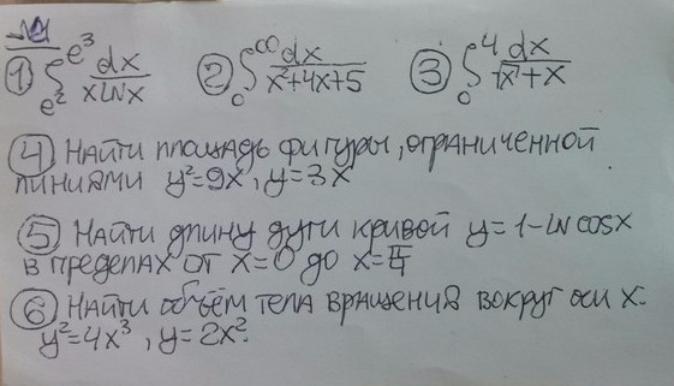 №1
① ∫_{e²}^{e³} dx/(x ln x) ② ∫_0^∞ dx/(x²+4x+5) ③ ∫_0^4 dx/(√x+x)
④ Найти площадь фигуры, ограниченной
линиями y²=9x, y=3x
⑤ Найти длину дуги кривой y=1-ln cosx
в пределах от x=0 до x=π/4
⑥ Найти объём тела вращения вокруг оси x:
y²=4x³, y=2x².